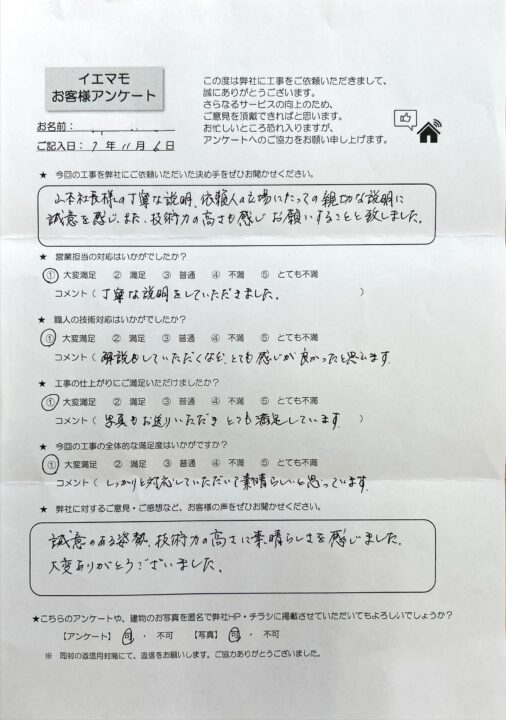 イエマモ
お客様アンケート
この度は弊社に工事をご依頼いただきまして、
誠にありがとうございます。
さらなるサービスの向上のため、
ご意見を頂戴できればと思います。
お忙しいところ恐れ入りますが、
アンケートへのご協力をお願い申し上げます。
お名前：
ご記入日：7年11月6日
★ 今回の工事を弊社にご依頼いただいた決め手をぜひお聞かせください。
山本社長様の丁寧な説明、依頼人の立場にたっての親切な説明に
誠意を感じ、また、技術力の高さも感じお願いすることと致しました。
★ 営業担当の対応はいかがでしたか？
① 大変満足 ② 満足 ③ 普通 ④ 不満 ⑤ とても不満
コメント（丁寧な説明をしていただきました。）
★ 職人の技術対応はいかがでしたか？
① 大変満足 ② 満足 ③ 普通 ④ 不満 ⑤ とても不満
コメント（解説もしていただくなど、とても感じが良かったと思います。
★ 工事の仕上がりにご満足いただけましたか？
① 大変満足 ② 満足 ③ 普通 ④ 不満 ⑤ とても不満
コメント（写真もお送りいただきとても満足しています。）
★ 今回の工事の全体的な満足度はいかがですか？
① 大変満足 ② 満足 ③ 普通 ④ 不満 ⑤ とても不満
コメント（しっかりと対応していただいて素晴らしいと思っています。
★ 弊社に対するご意見・ご感想など、お客様の声をぜひお聞かせください。
誠意のある姿勢、技術力の高さに素晴らしさを感じました。
大変ありがとうございました。
★こちらのアンケートや、建物のお写真を匿名で弊社HP・チラシに掲載させていただいてもよろしいでしょうか？
【アンケート】 可 ・ 不可 【写真】 可 ・ 不可
※ 同封の返信用封筒にて、返信をお願いします。ご協力ありがとうございました。